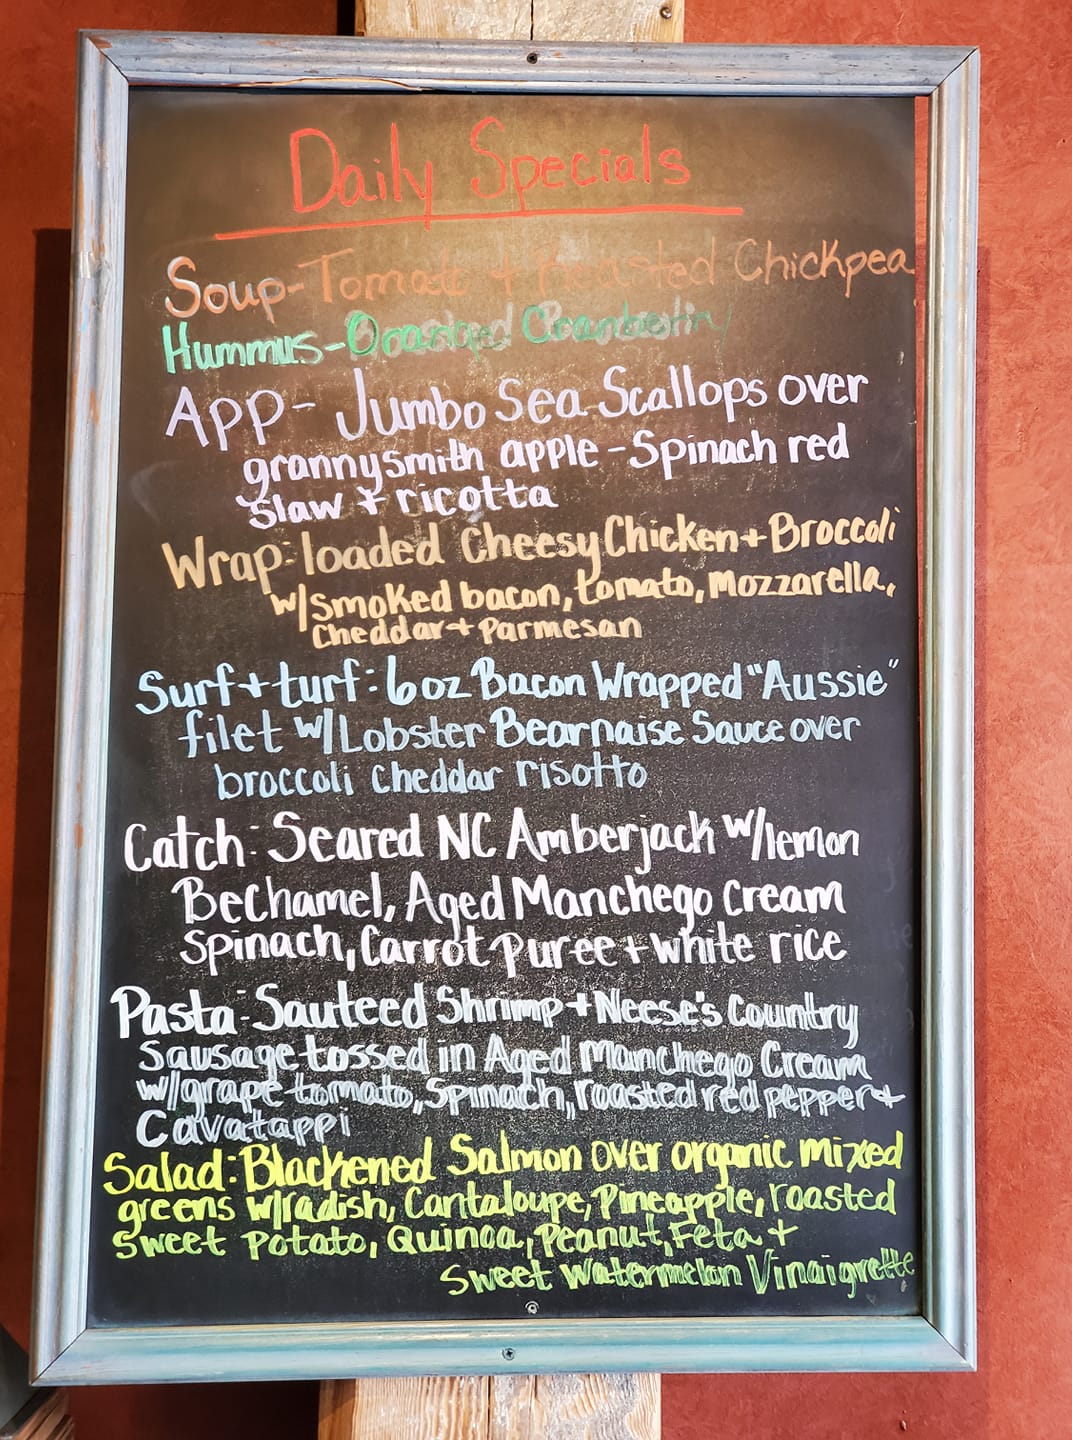 Daily Specials
Soup- Tomato + Roasted Chickpea
Hummus- Orange Cranberry
App- Jumbo Sea Scallops over
grannysmith apple - Spinach red
slaw + ricotta
Wrap: loaded Cheesy Chicken + Broccoli
w/ smoked bacon, tomato, Mozzarella,
Cheddar + Parmesan
Surf + turf: 6oz Bacon Wrapped "Aussie"
filet w/ Lobster Bearnaise Sauce over
broccoli cheddar risotto
Catch: Seared NC Amberjack w/ lemon
BeChamel, Aged Manchego Cream
Spinach, Carrot puree + white rice
Pasta: Sauteed Shrimp + Neese's Country
Sausage tossed in Aged Manchego Cream
w/ grape tomato, Spinach, roasted red pepper +
Cavatappi
Salad: Blackened Salmon over organic mixed
greens w/ radish, Cantaloupe, Pineapple, roasted
sweet potato, Quinoa, Peanut, Feta +
Sweet Watermelon Vinaigrette